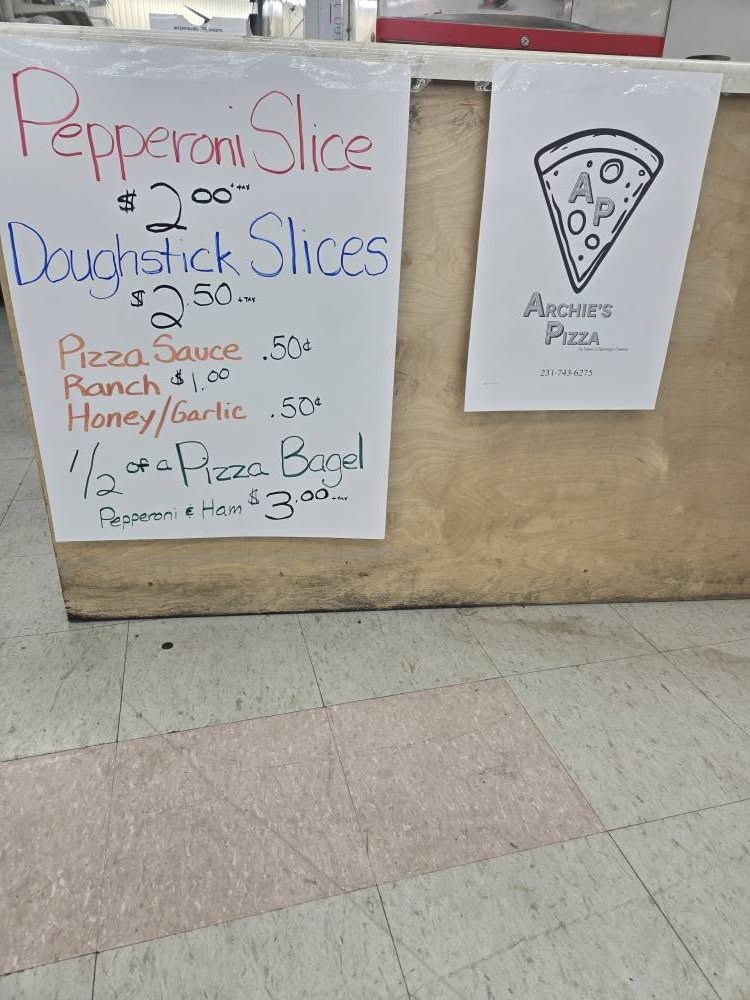 Pepperoni Slice
$2.00 + TAX
Doughstick Slices
$2.50 + TAX
Pizza Sauce .50¢
Ranch $1.00
Honey/Garlic .50¢
1/2 of a Pizza Bagel
Pepperoni & Ham $3.00 + TAX
AP
ARCHIE'S
PIZZA
231-743-6275